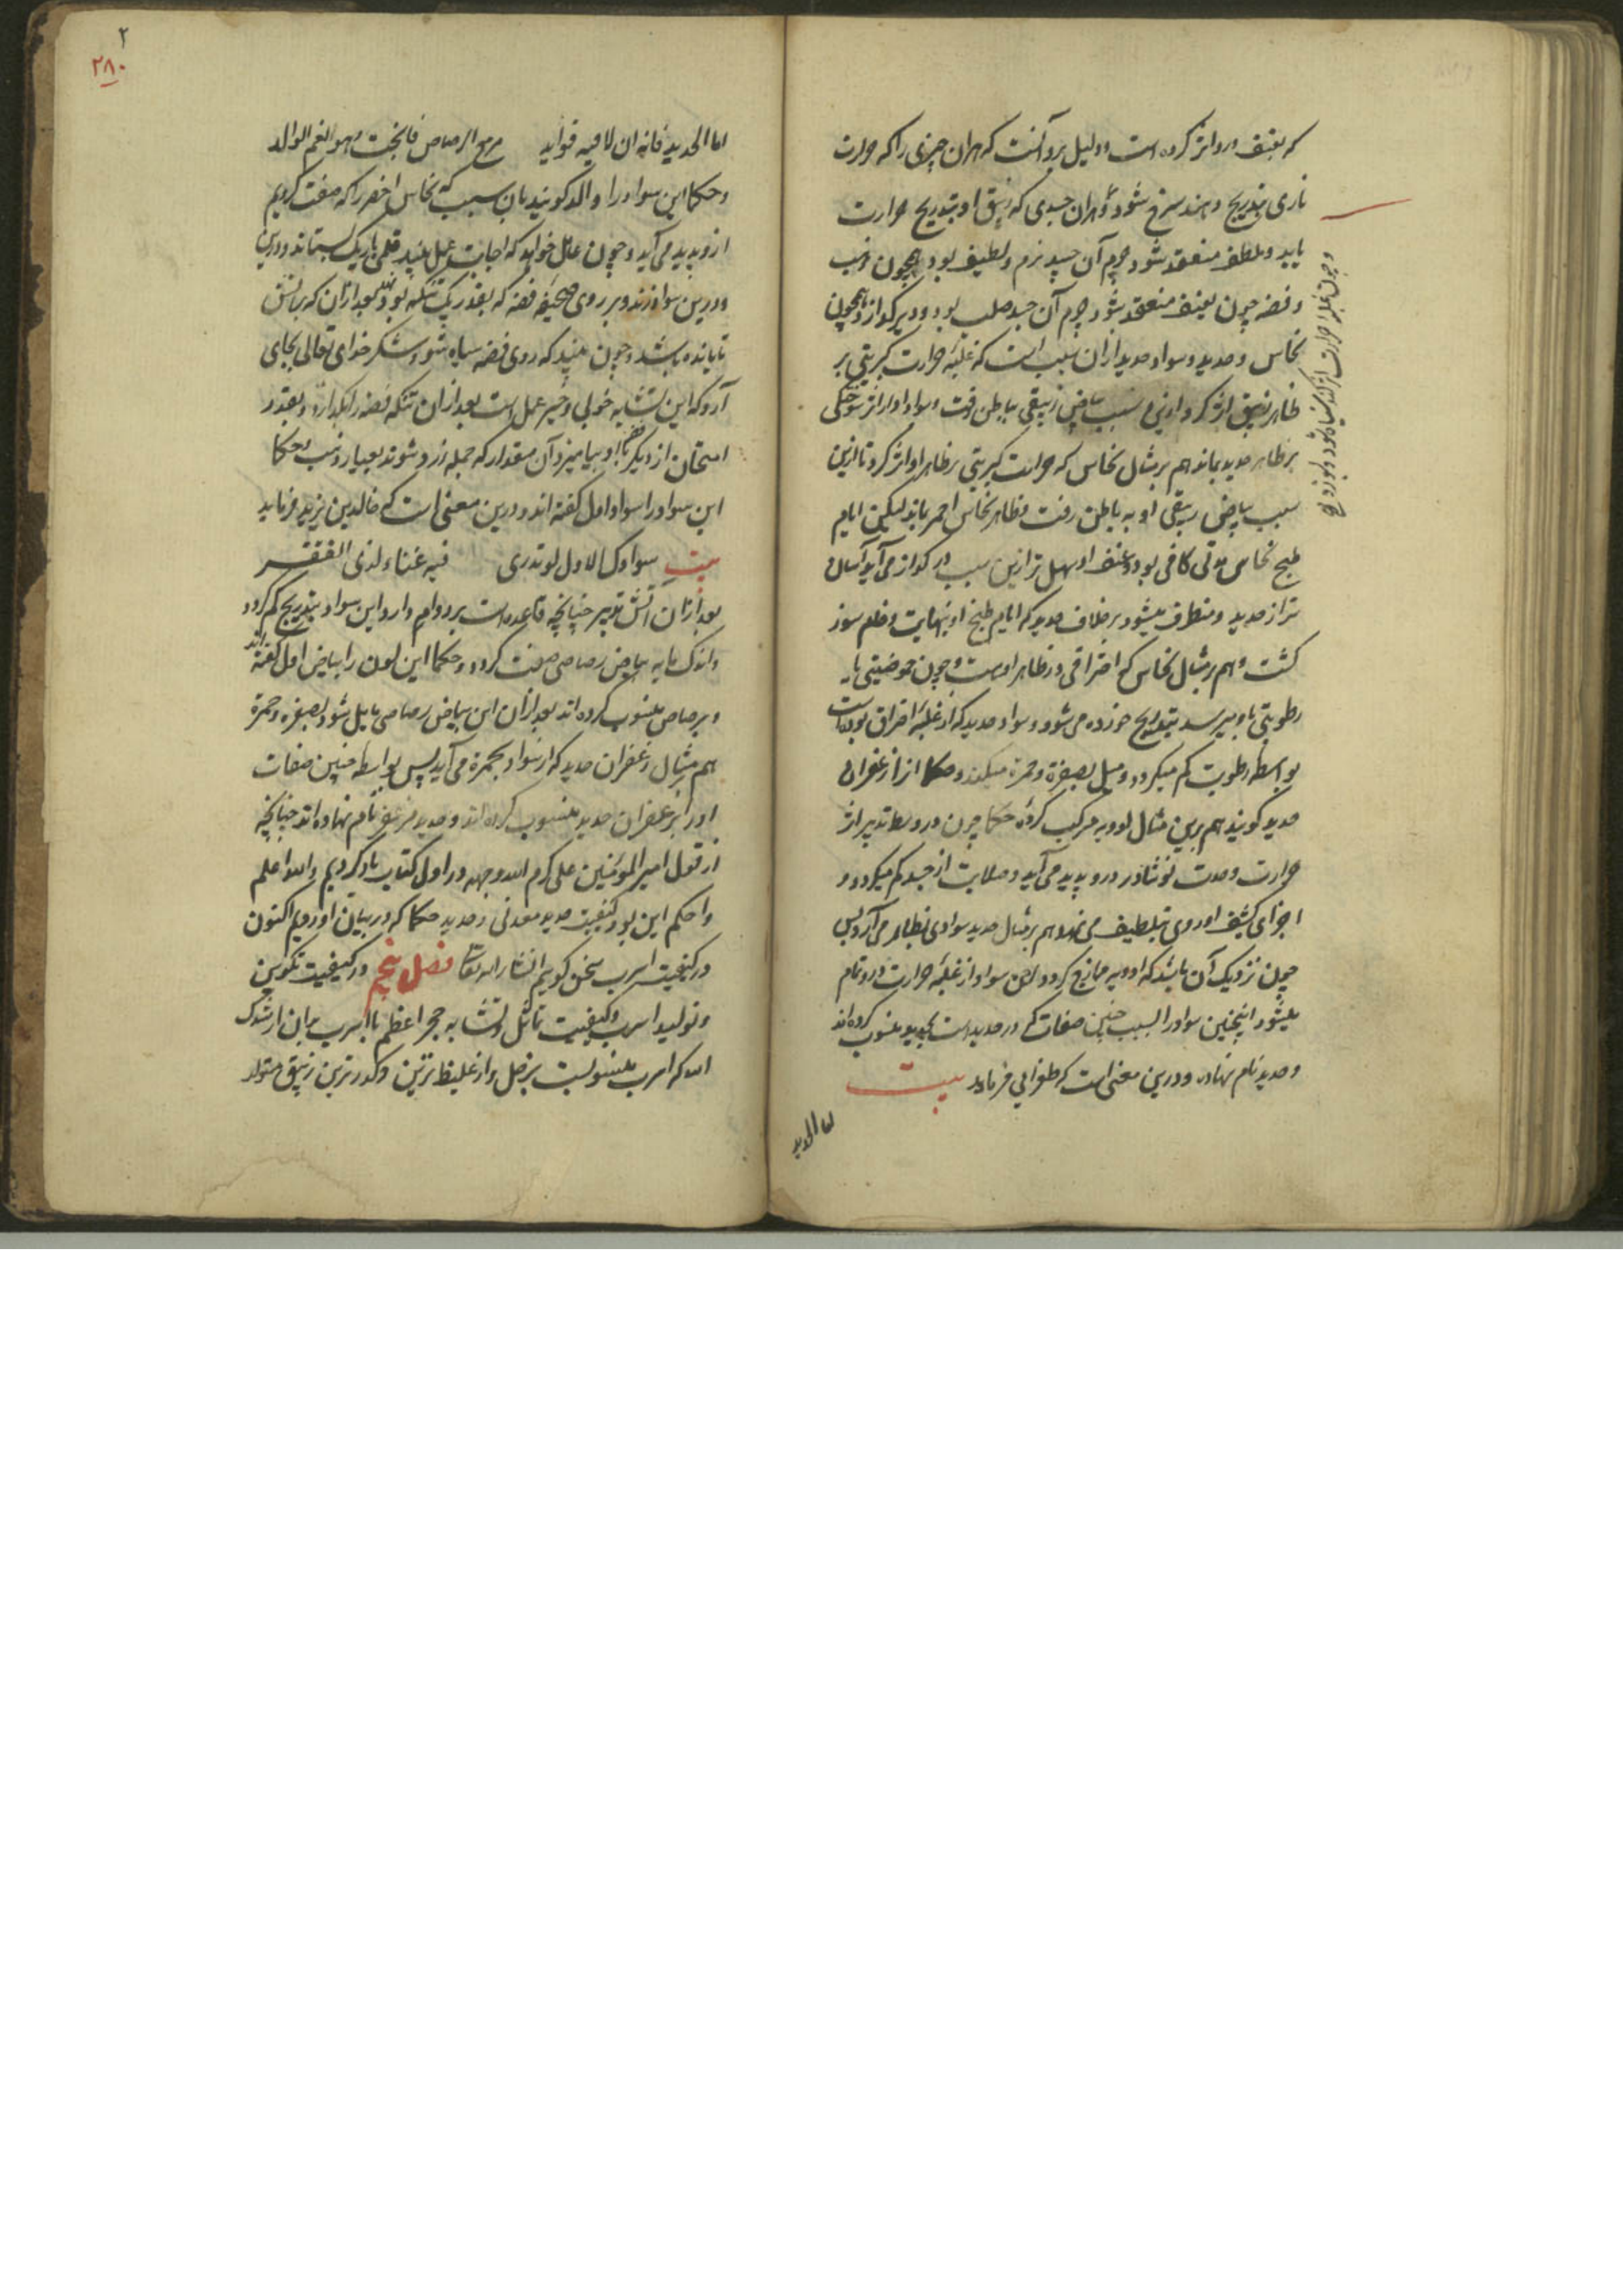 که بعنف درو اثر کرده است و دلیل برو آنست که هران چیزی را که حرارت
ناری بتدریج دهند سرخ شود و هران جسدی که زیبق او بتدریج حرارت
یابد و بلطف منعقد شود جرم آن جسد نرم و لطیف بود همچون ذهب
و فضه چون بعنف منعقد شود جرم آن جسد صلب بود و دیر گداز همچون
نحاس و حدید و سواد حدید ازان سبب است که غلبه حرارت کبریتی بر
ظاهر زیبق اثر کرد و ازین سبب بیاض زیبقی بباطن رفت و سواد او از اثر سوختگی
بر ظاهر حدید بماند هم بر مثال نحاس که حرارت کبریتی بر ظاهر او اثر کرد تا ازین
سبب بیاض زیبقی او به باطن رفت و ظاهر نحاس احمر بماند لیکن ایام
طبخ نحاس مدتی کافی بود و عنف او سهل تر ازین سبب در گداز می آید آسان
تر از حدید و منطرق میشود بر خلاف حدید که ایام طبخ او بنهایت
گشت و هم بر مثال نحاس که احتراقی در ظاهر اوست و چون حموضیتی یا
رطوبتی باو میرسد بتدریج خورده می شود و سواد حدید که از غلبه احتراق بوده است
بواسطه رطوبت کم میگردد و میل بصفرة و حمرة میکند و حکما انرا زعفران
حدید گویند هم برین مثال ادویه مرکب کرده حکما چون در وسط تدبیر اثر
حرارت و حدت نوشادر درو پدید می آید و صلابت از جسد کم میگردد و
اجزای کثیف او روی بتلطیف می نهد هم بر مثال حدید سوادی بظاهر می آرد پس
چون نزدیک آن باشد که ادویه ممازج گردد این سواد از غلبه حرارت درو تمام
میشود اینچنین سواد را بسبب چنین صفات که در حدید است بحدید منسوب کرده اند
و حدید نام نهاده و درین معنی است که طغرایی فرماید بیت
اما الحدید
۲
۲۸۰
اما الحدید فانه ان لاقیه فواید مزج الرصاص فانجبت وهو انعم الوالد
و حکما این سواد را والد گویند بان سبب که نحاس اخضر را که صفت کردیم
ازو پدید می آید و چون عامل خواهد که اجابت عمل بیند قلمی باریک بستاند و درین
و درین سواد زند و بر روی صحیفه فضه که بقدر یک تنکه بود کشد بعد ازان که بر آتش
تابانده باشد و چون بیند که روی فضه سیاه شود شکر خدای تعالی بجای
آرد که این تشابه خوبی و خیر عمل است بعد ازان تنکه فضه را بگدازد و بقدر
امتحان از دیگر با او بیامیزد آن مقدار که جمله زر شوند بعیار ذهب و حکما
این سواد را سواد اول گفته اند و درین معنی است که خالد بن یزید فرماید
بیت سوادک الاول لو تدری فیه غناء لذی الفقر
بعد ازان آتش تدبیر چنانچه قاعده است بر دوام دارد این سواد بتدریج کم گردد
و اندک مایه بیاض رصاصی صفت گردد و حکما این لون را بیاض اول گفته اند
و برصاص منسوب کرده اند بعد ازان این بیاض رصاصی مایل شود بصفرة و حمرة
هم بر مثال زعفران حدید که از سواد بحمرة می آید پس بواسطه چنین صفات
او را بزعفران حدید منسوب کرده اند و حدید مزعفر نام نهاده اند چنانچه
از قول امیر المؤمنین علی کرم الله وجهه در اول کتاب یاد کردیم والله اعلم
و احکم این بود کیفیت حدید معدنی و حدید حکما که در بیان اوردیم اکنون
در کیفیت اسرب سخن گویم انشاء الله تعالی فصل پنجم در کیفیت تکوین
و تولید اسرب و کیفیت تماثل و تشابه حجر اعظم با اسرب بدان ارشدک
الله که اسرب منسوبست بزحل و از غلیظ ترین و کدر ترین زیبق متولد